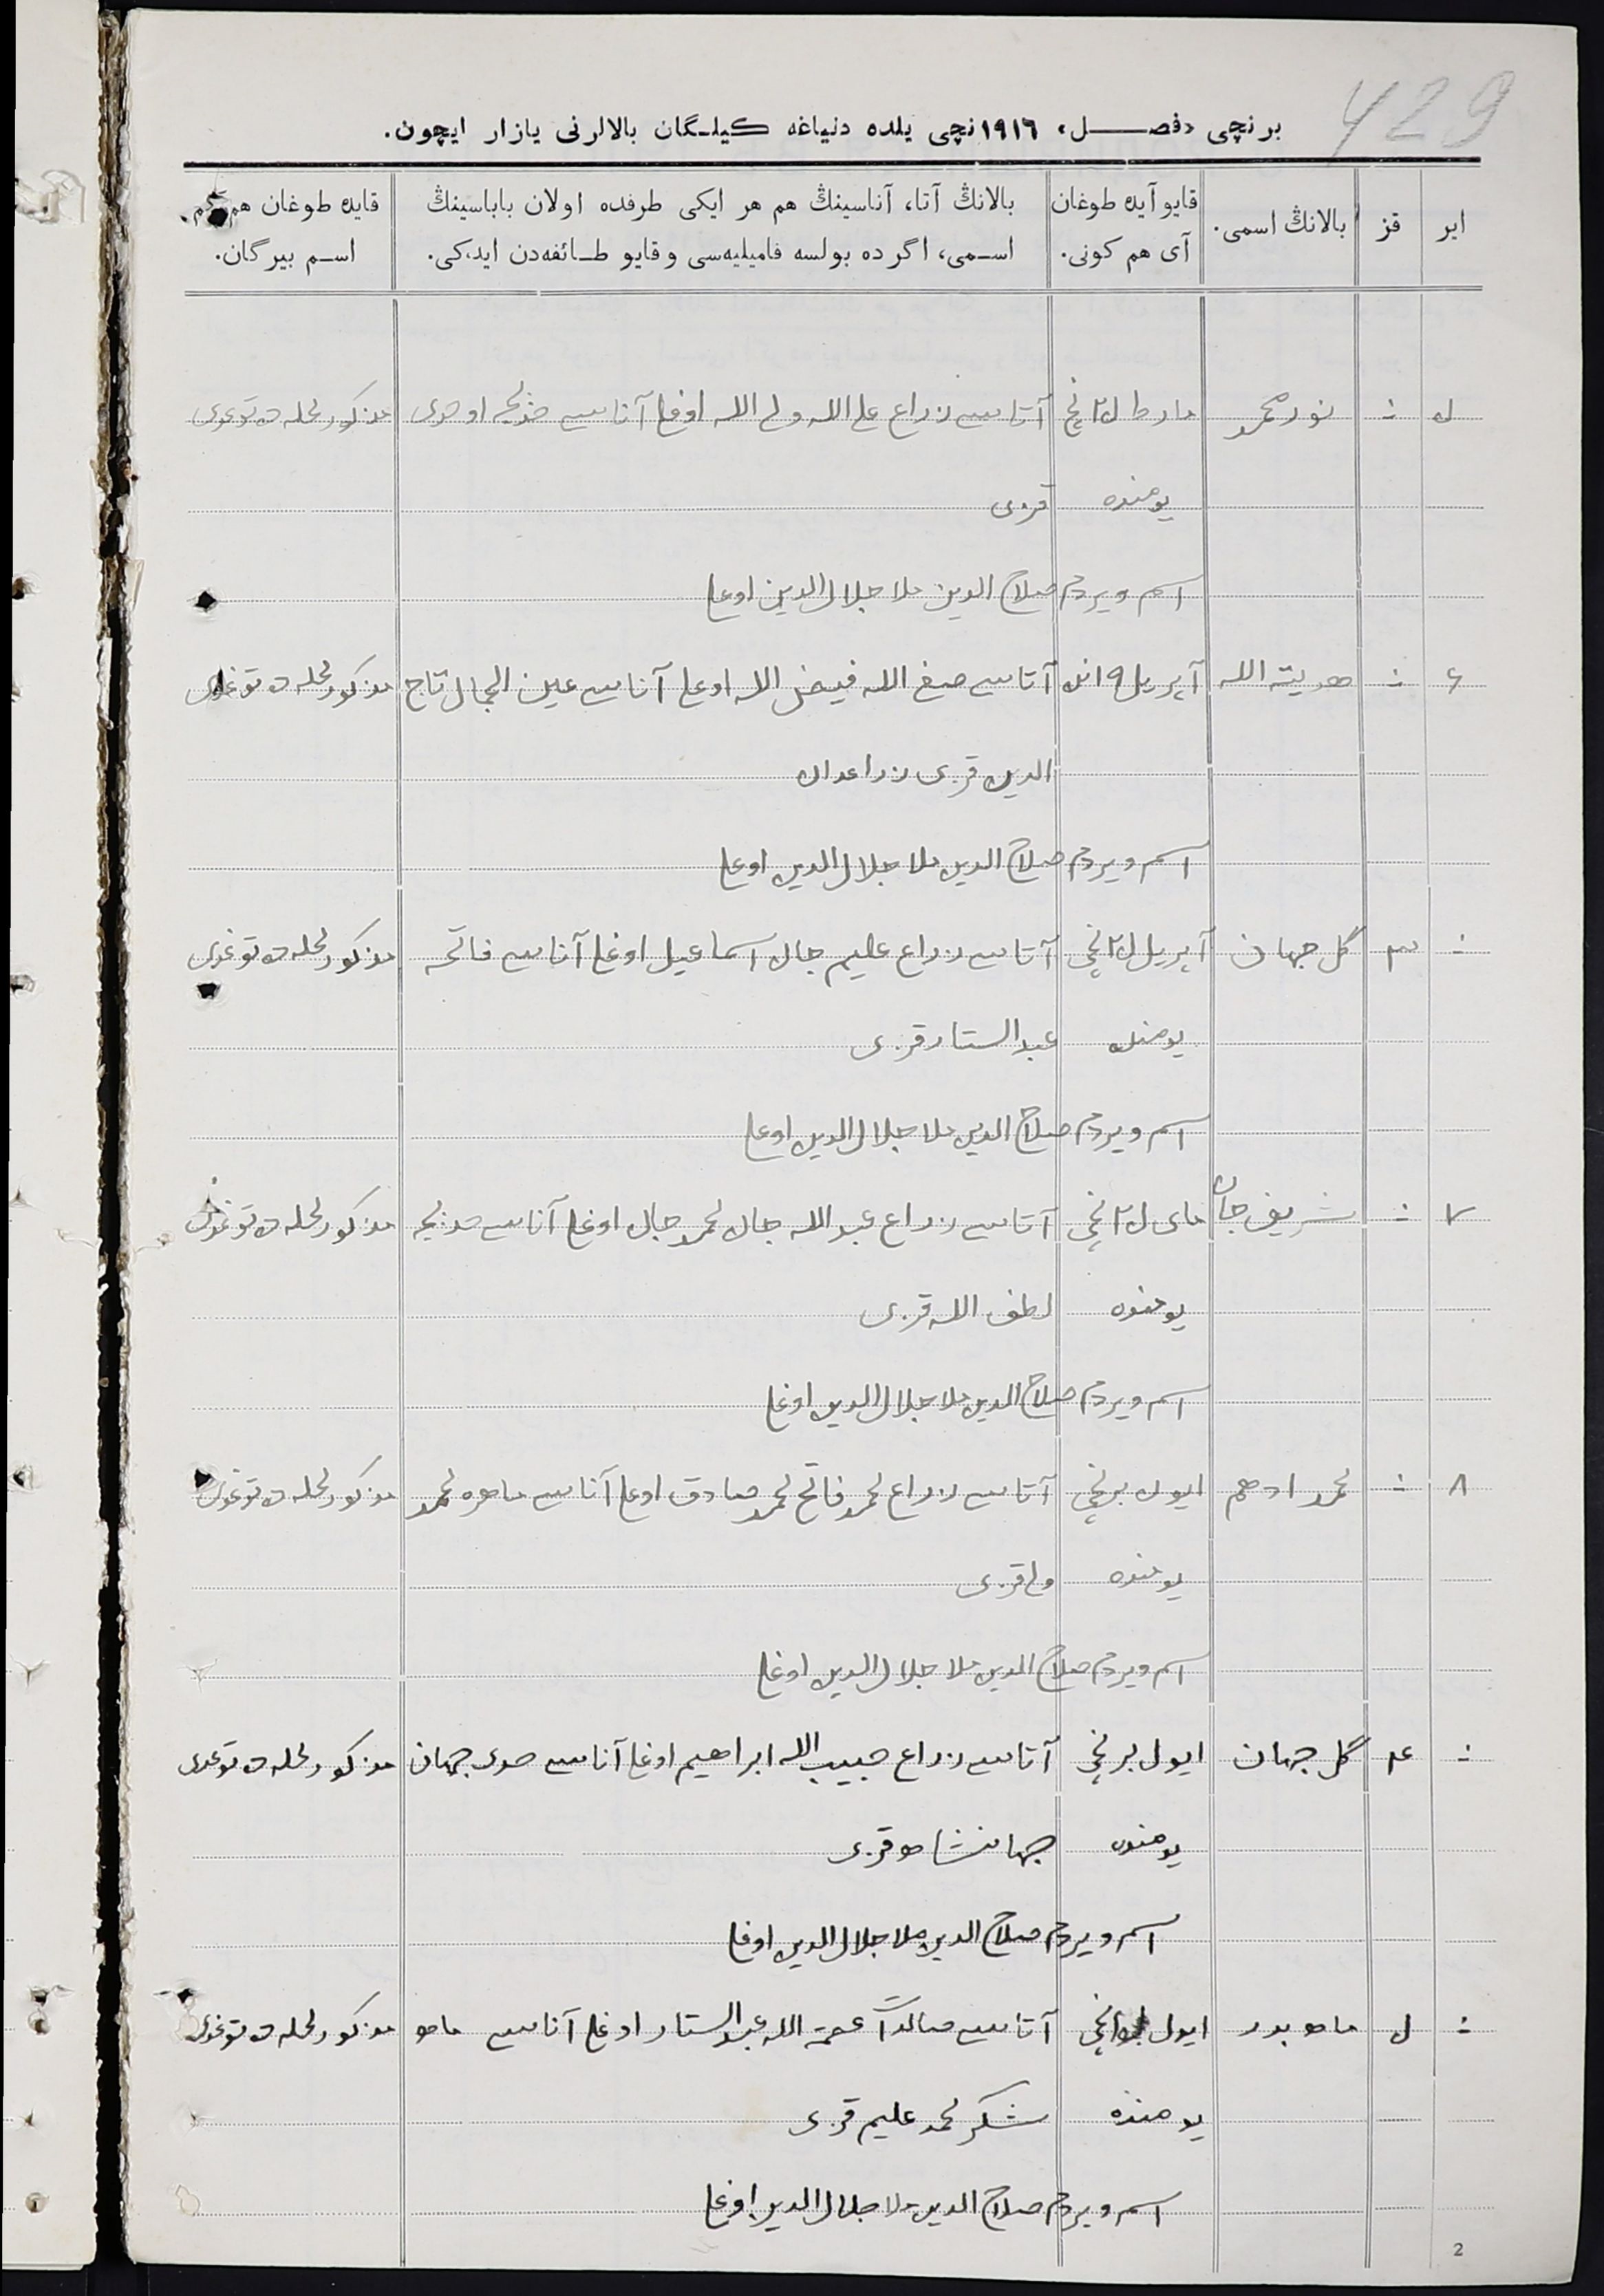 429
برنچی «فصل» ۱۹۱٦نچی یلده دنیاغه کیلگان بالالرنی یازار ایچون.
ایر
قز
بالانڭ اسمی.
قایو آیده طوغان
آی هم کونی.
بالانڭ آتا، آناسینڭ هم هر ایکی طرفده اولان باباسینڭ
اسمی، اگر ده بولسه فامیلیه‌سی و قایو طائفه‌دن ایدکی.
قایده طوغان هم کم
اسم بیرگان.
نور محمد مارط نچی آتاسی زراع ولی الله اوغلی آناسی خدیجه مذکور محله ده توغدی
یومنده قزی
اسم ویردم صلاح الدین ملا جلال الدین اوغلی
٦ هدیة الله آپریل ۹ آتاسی صبغ الله فیض الله اوغلی آناسی عین الجمال تاج مذکور محله ده توغدی
الدین قزی زراعدان
اسم ویردم صلاح الدین ملا جلال الدین اوغلی
۳ گل جهان آپریل نچی آتاسی زراع علیم جان اسماعیل اوغلی آناسی فاتحه مذکور محله ده توغدی
یومنده عبد الستار قزی
اسم ویردم صلاح الدین ملا جلال الدین اوغلی
۷ شریف جان مای نچی آتاسی زراع عبد الله جان محمد جان اوغلی آناسی خدیجه مذکور محله ده توغدی
یومنده لطف الله قزی
اسم ویردم صلاح الدین ملا جلال الدین اوغلی
۸ محمد ادهم ایون برنچی آتاسی زراع محمد فاتح محمد صادق اوغلی آناسی ماهره محمد مذکور محله ده توغدی
یومنده ولی قزی
اسم ویردم صلاح الدین ملا جلال الدین اوغلی
۴ گل جهان ایول برنچی آتاسی زراع حبیب الله ابراهیم اوغلی آناسی جهان مذکور محله ده توغدی
یومنده جهانشاه قزی
اسم ویردم صلاح الدین ملا جلال الدین اوغلی
ماه بدر ایول آتاسی عصمة الله عبد الستار اوغلی آناسی ماه مذکور محله ده توغدی
یومنده شکر محمد علیم قزی
اسم ویردم صلاح الدین ملا جلال الدین اوغلی
2